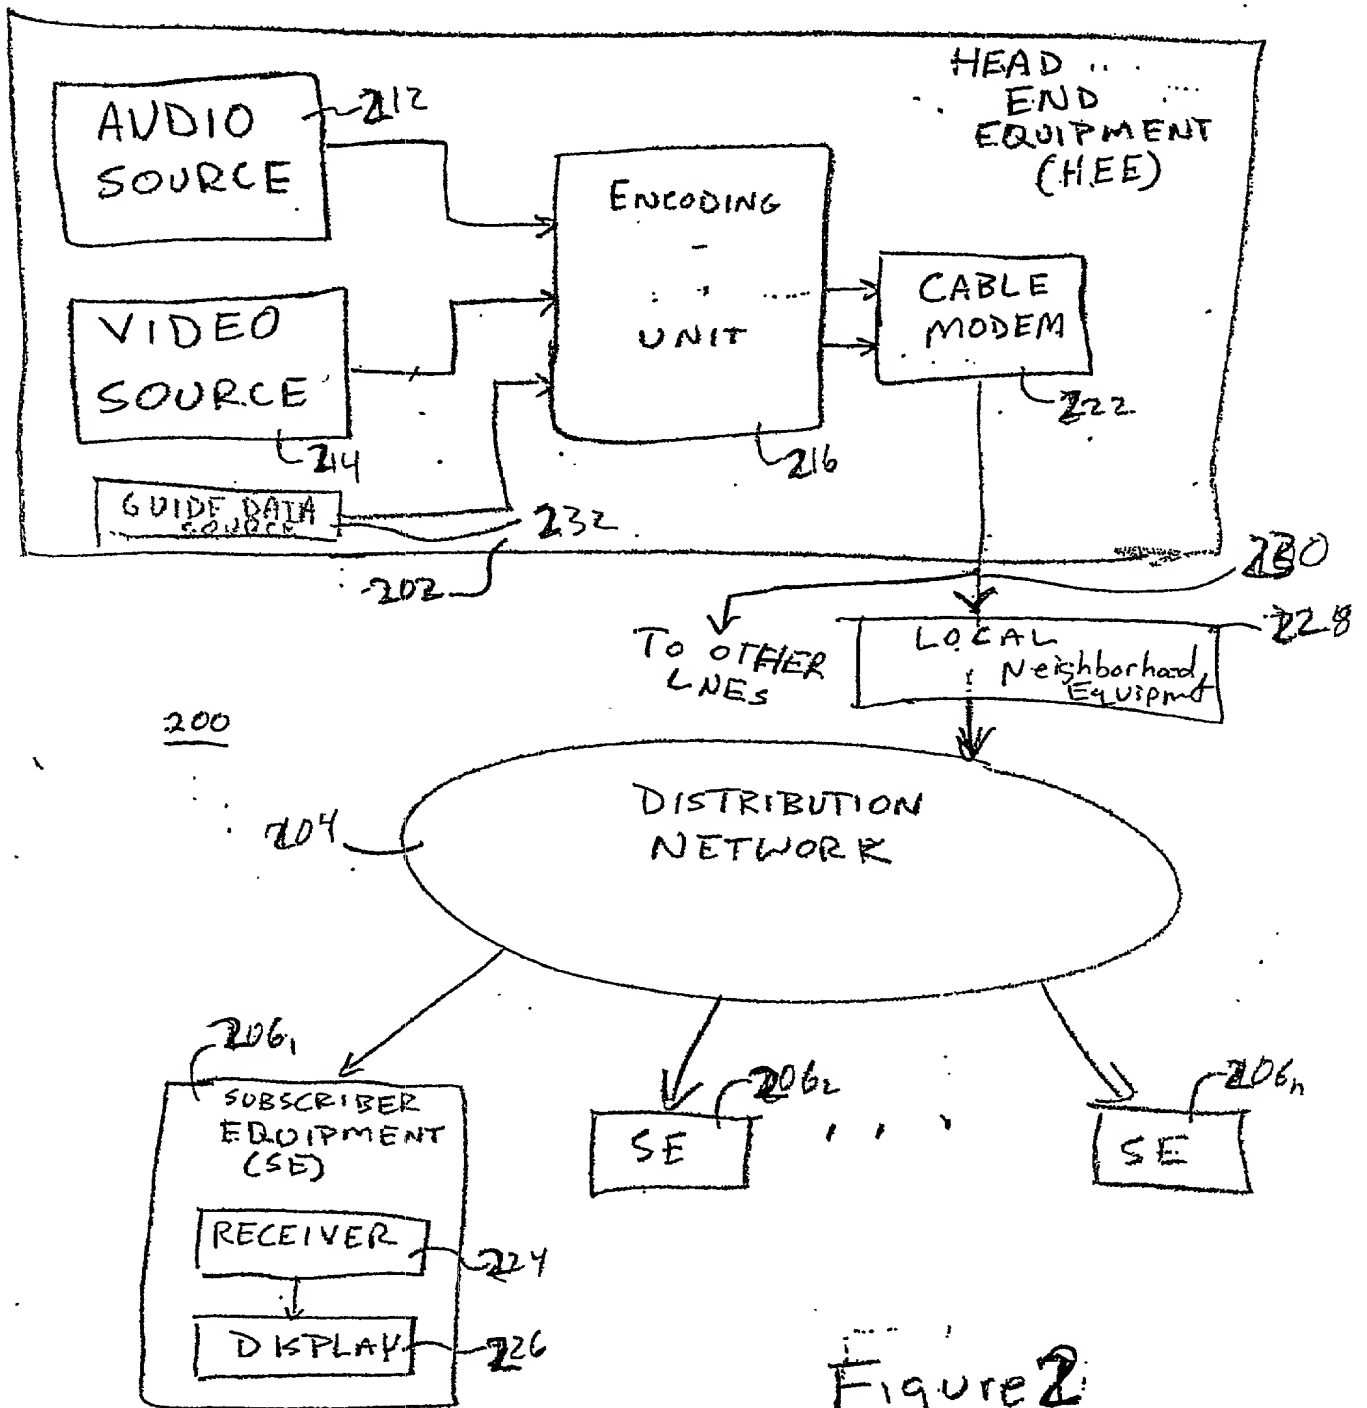 HEAD
END
EQUIPMENT
(HEE)
AUDIO
SOURCE
212
ENCODING
UNIT
216
CABLE
MODEM
222
VIDEO
SOURCE
214
GUIDE DATA
SOURCE
232
202
TO OTHER
LNES
228
LOCAL
Neighborhood
Equipmt
200
DISTRIBUTION
NETWORK
204
206₁
SUBSCRIBER
EQUIPMENT
(SE)
RECEIVER
224
DISPLAY
226
SE
206₂
SE
206ₙ
Figure 2